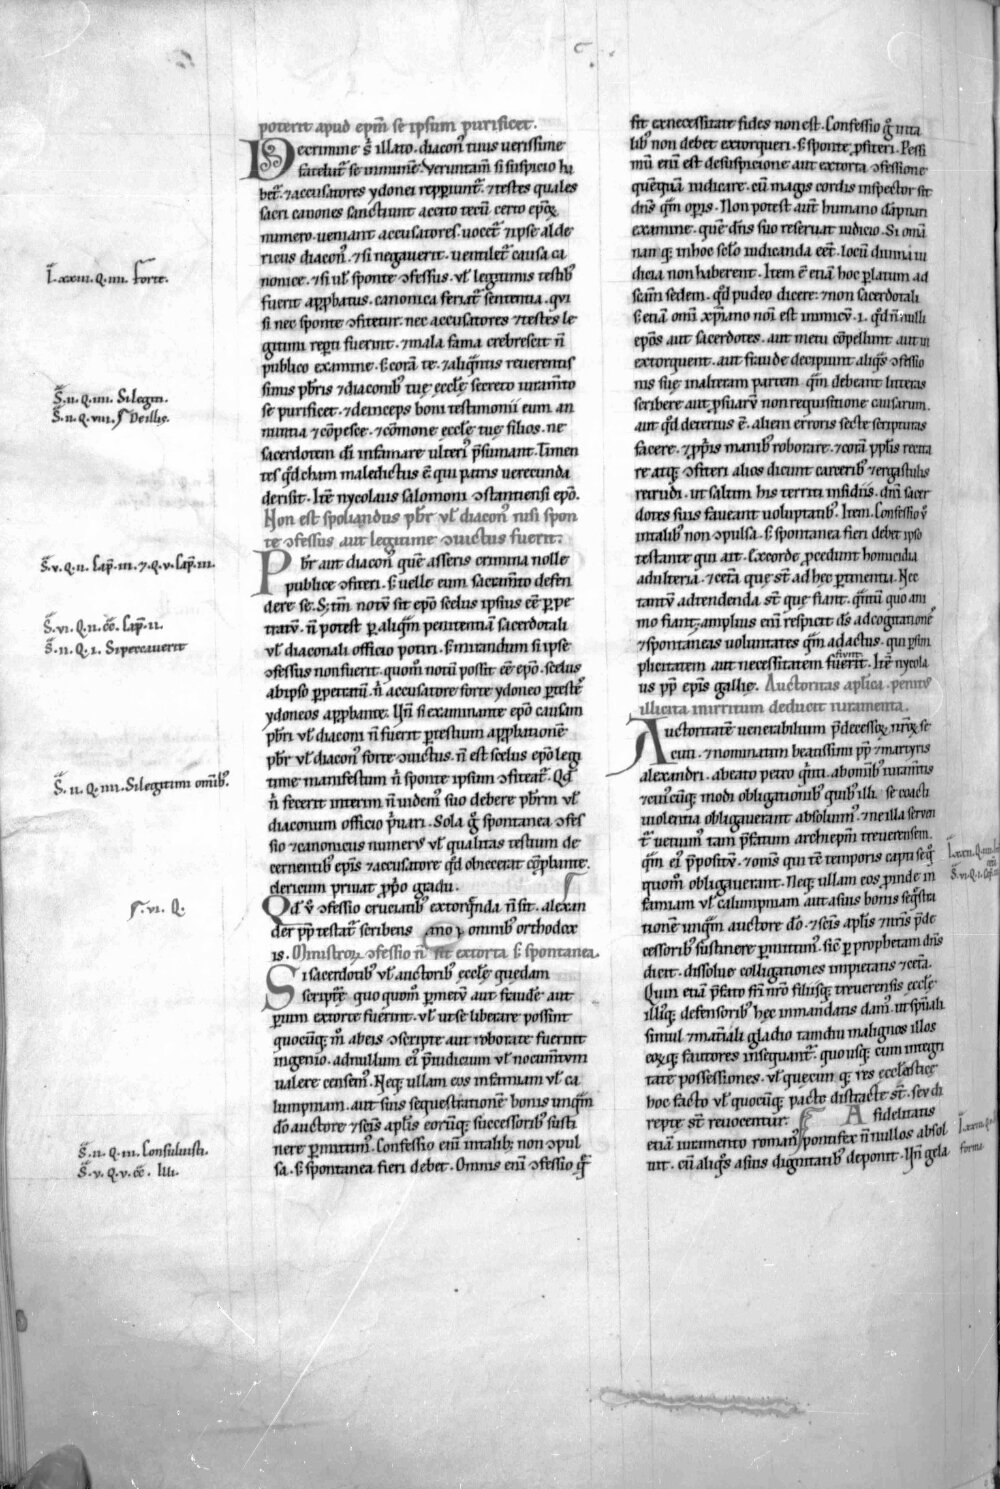 poterit apud ep̄m se ipsum purificet.
De crimine ṡ illato. diaconꝰ tuus uerissime
fatebitꝰ se inmunē. Veruntam̄ si suspicio ha
betꝰ. ⁊ accusatores ydonei repperiuntꝰ. ⁊ testes quales
sacri canones sanctiunt accito tecū certo ep̄oꝝ
numero. ueniant accusatores. uocetꝰ ⁊ ipse alde
ricus diaconꝰ. ⁊ si negauerit. uentiletꝰ causa ca
nonice. ⁊ si ul̓ sponte ꝯfessus. ul̓ legitimis testibꝰ
fuerit app̱robatus. canonica feriatꝰ sententia. qui
si nec sponte ꝯfitetur. nec accusatores ⁊ testes le
gitimi rep̱ti fuerint. ⁊ mala fama crebrescit n̄
publico examine. ṡ corā te. ⁊ aliqⁱntis reuerentis
simis pb̄ris ⁊ diaconibꝰ tuę eccl̄ę secreto iuram̄to
se purificet. ⁊ deinceps boni testimonii eum an
nuntia ⁊ cōpesce. ⁊ cōmone eccl̄ę tuę filios. ne
sacerdotem d̄i infamare ulteriꝰ p̄sumant. Timen
tes qd̓ cham maledictus ē qui patris uerecunda
derisit. Itē nycolaus salomoni ꝯstantiensi ep̄o.
Non est spoliandus pb̄r ul̓ diaconꝰ nisi spon
te ꝯfessus aut legitime ꝯuictus fuerit.
Pb̄r aut diaconꝰ quē asseris crimina nolle
publice ꝯfiteri. ṡ uelle eum sacram̄to defen
dere se. S; tm̄ notū sit ep̄o scelus ipsius eē ꝑpe
tratū. n̄ potest ꝑ aliqⁱm penitentiā sacerdotali
ul̓ diaconali officio potiri. ṡ mirandum si ipse
ꝯfessus non fuerit. quom̊ notū possit eē ep̄o. scelus
ab ipso ꝑpetratū. n̄ accusatore forte ydoneo ꝑ testes
ydoneos app̱robante. Un̄ si examinante ep̄o causam
pb̄ri ul̓ diaconi n̄ fuerit ꝑ testium app̱robationē
pb̄r ul̓ diaconꝰ forte ꝯuictus. n̄ est scelus ep̄o legi
time manifestum n̄ sponte ipsum ꝯfiteatꝰ. Qd̓
n̄ fecerit interim n̄ uidemꝰ suo debere pb̄rm ul̓
diaconum officio pⁱuari. Sola g̊ spontanea ꝯfes
sio ⁊ canonicus numerꝰ ul̓ qualitas testium de
cernentibꝰ ep̄is ⁊ accusatore qd̓ obiecerat cōp̱bante.
clericum priuat ꝓprio gradu.
Qd̓ ů ꝯfessio cruciatibꝰ extorqⁱnda n̄ sit. alexan
der pp̄ testatꝰ scribens omnibꝰ orthodox
is. Ministroꝝ ꝯfessio n̄ sit extorta ṡ spontanea.
Si sacerdotibꝰ ul̓ auctoribꝰ eccl̄ę quedam
scriptę quoquom̊ ꝑ metū aut fraudē aut
ꝑ uim extorte fuerint. ul̓ ut se liberare possint
quocūq; m̊ ab eis ꝯscripte aut roborate fuerint
ingenio. ad nullum eiꝰ p̄iudicium ul̓ nocum̄tum
ualere censemꝰ. Neq; ullam eos infamiam ul̓ ca
lumpniam. aut suis sequestrationē bonis unqⁱm
dn̄o auctore ⁊ sc̄is apl̄is eorūq; successoribꝰ susti
nere ꝑmittimꝰ. Confessio enī in talibꝰ non ꝯpul
sa. ṡ spontanea fieri debet. Omnis enī ꝯfessio qⁱ
fit ex necessitate fides non est. Confessio g̊ in ta
libꝰ non debet extorqueri. ṡ sponte ꝓfiteri. Pessi
mū enī est de suspicione aut extorta ꝯfessione
quēquā iudicare. cū magis cordis inspector sit
dn̄s qⁱm operis. Non potest aut̄ humano dāpnari
examine. quē dn̄s suo reseruat iudicio. Si omā
nan q; in hoc sclo̓ iudicanda eēt. locū diuina iu
dicia non haberent. Item ē etiā hoc ꝑlatum ad
scām sedem. qd̓ pudeo dicere. ⁊ non sacerdotali
ṡ etiā omi xp̄iano noī est inimicū. .i. qd̓ nulli
ep̄os aut sacerdotes. aut metu cōpellunt aut ui
extorquent. aut fraude decipiunt aliqⁱs ꝯfessio
nis suę in alteram partem qⁱm debeant litteras
scribere aut ꝓ suarū non requisitione causarum.
aut qd̓ deterius ē. alieni erroris secte scripturas
facere. ⁊ ꝓpris manibꝰ roborare. ⁊ corā ppl̄is recita
re atq; ꝯfiteri alios dicunt carceribꝰ ⁊ ergastulis
retrudi. ut saltim his territi insidiis. dn̄i sacer
dotes suis faueant uoluptatibꝰ. Item. Confessio ů
in talibꝰ non ꝯpulsa. ṡ spontanea fieri debet ipso
testante qui ait. Ex corde ꝓcedunt homicidia
adulteria. ⁊ cetā que st̄ ad hec ꝑtinentia. Nec
tantū adtendenda st̄ que fiant. qⁱntū quo ani
mo fiant. amplius enī respicit d̄s ad cogitationes
⁊ spontaneas uoluntates qⁱm ad actus. qui ꝑ sim
plicitatem aut necessitatem fiunt. Itē nycola
us pp̄ ep̄is gallię. Auctoritas apl̄ica penitꝰ
illicita in irritum deducit iuramenta.
Auctoritatē uenerabilium p̄decessoꝝ nr̄oꝝ se
cuti. ⁊ nominatim beatissimi pp̄ ⁊ martyris
alexandri. a beato petro qⁱnti. ab omibꝰ iuramtis
⁊ cuiꝰcūq; modi obligationibꝰ quibꝰ illi se coacti
uiolentia obligauerant absoluimꝰ. ⁊ ne illa seruen
tꝰ uetuimꝰ tam p̄fatum archiep̄m treuerensem.
qⁱm eiꝰ p̄positū. ⁊ omīs qui tē temporis captu seqⁱ
quom̊ obligauerant. Neq; ullam eos ꝓinde in
famiam ul̓ calumpniam aut a suis bonis seqⁱstra
tionē unqⁱm auctore dn̄o. ⁊ sc̄is apl̄is ⁊ nr̄is p̄de
cessoribꝰ sustinere ꝑmittimꝰ. sic̄ ꝑ prophetam dn̄s
dicit. dissolue colligationes impietatis ⁊ cetā.
Quin etiā p̄fato fr̄i nr̄o filiisq; treuerensis eccl̄ę
illiꝰq; defensoribꝰ hęc in mandatis damꝰ. ut spūali
simul ⁊ mat̄iali gladio tamdiu malignos illos
eoꝝq; fautores insequantꝰ. quo usq; cum integri
tate possessiones. ul̓ quecun q; res eccl̄esticę
hoc facto ul̓ quocūq; pacto distracte st̄. seu di
repte st̄ reuocentur. A fidelitatis
etiā iuramento romanꝰ pontifex n̄nullos absol
uit. cū aliqⁱs a suis dignitatibꝰ deponit. Un̄ gela
I. xxiii. Q. iiii. forte.
S̄. ii. Q. iiii. Si legitī.
S̄. ii. Q. viii. ſ De illis.
S̄. v. Q. ii. Cap̄. iii. ⁊. Q. v. Cap̄. iii.
S̄. vi. Q. ii. Cap̄. ii.
S̄. ii. Q. i. Si peccauerit
S̄. ii. Q. iiii. Si legitimi omībꝰ.
ſ. vi. Q.
S̄. ii. Q. iii. Consuluisti.
S̄. v. Q. v. c̄c. iiii.